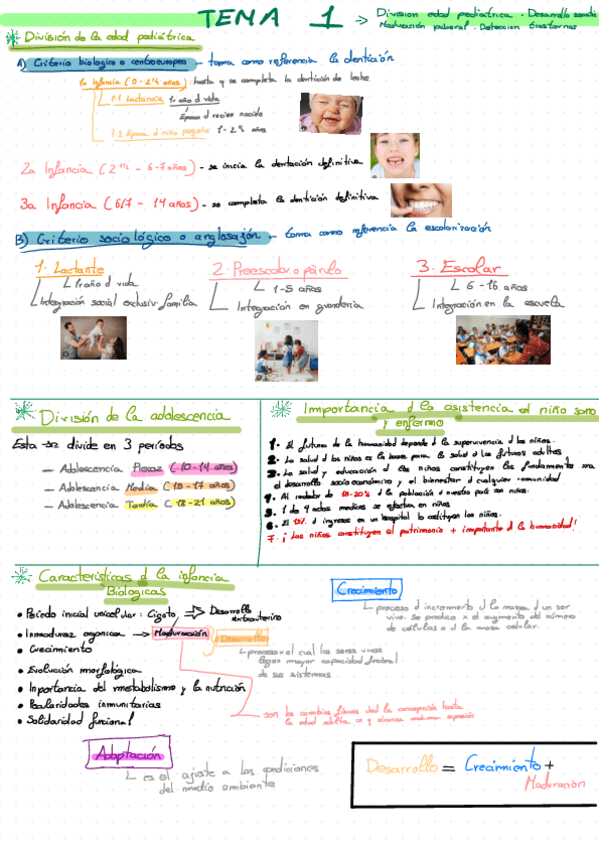 TEMA 1 -> División edad pediátrica · Desarrollo
Maduración puberal · Detección trastornos
División de la edad pediátrica
A) Criterio biológico o centroeuropeo - toma como referencia la dentición
1a Infancia (0 - 2 1/2 años): hasta q se completa la dentición de leche
1.1 Lactancia 1r año d vida
Época d recien nacido
1.2 Época d niño pequeño 1 - 2 1/2 años
2a Infancia (2 1/2 - 6-7 años) - se inicia la dentación definitiva
3a Infancia (6/7 - 14 años) - se completa la dentición definitiva
B) Criterio sociológico o anglosajón - toma como referencia la escolarización
1. Lactante
1r año d vida
Integración social exclusiv. familia
2. Preescolar o párvulo
1-5 años
Integración en guardería
3. Escolar
6 - 16 años
Integración en la escuela
División de la adolescencia
Esta se divide en 3 períodos
- Adolescencia Precoz (10-14 años)
- Adolescencia Media (15-17 años)
- Adolescencia Tardía (18-21 años)
Importancia d la asistencia al niño sano
y enfermo
1. El futuro de la humanidad depende d la supervivencia d los niños.
2. La salud d los niños es la base para la salud d los futuros adultos
3. La salud y educación d los niños constituyen los fundamentos para
el desarrollo socio económico y el bienestar d cualquier comunidad
4. Al rededor de 18-20% d la población d nuestro país son niños.
5. 1 de 4 actos medicos se efectua en niños
6. El 10% d ingresos en un hospital lo constituyen los niños.
7. ¡Los niños constituyen el patrimonio + importante d la humanidad!
Características d la infancia
Biológicas
• Período inicial unicelular: Cigoto -> Desarrollo
intrauterino
• Inmadurez organica -> Maduración
Desarrollo
• Crecimiento
proceso x el cual los seres vivos
logran mayor capacidad funcional
de sus sistemas
• Evolución morfológica
• Importancia del metabolismo y la nutrición
• Peculiaridades inmunitarias
• Solidaridad funcional
son los cambios físicos desd la concepción hasta
la edad adulta en q alcanza máxima expresión
Crecimiento
proceso d incremento d la massa d un ser
vivo. se produce x el aumento del número
de células o d la masa celular.
Adaptación
es el ajuste a las condiciones
del medio ambiente
Desarrollo = Crecimiento +
Maduración